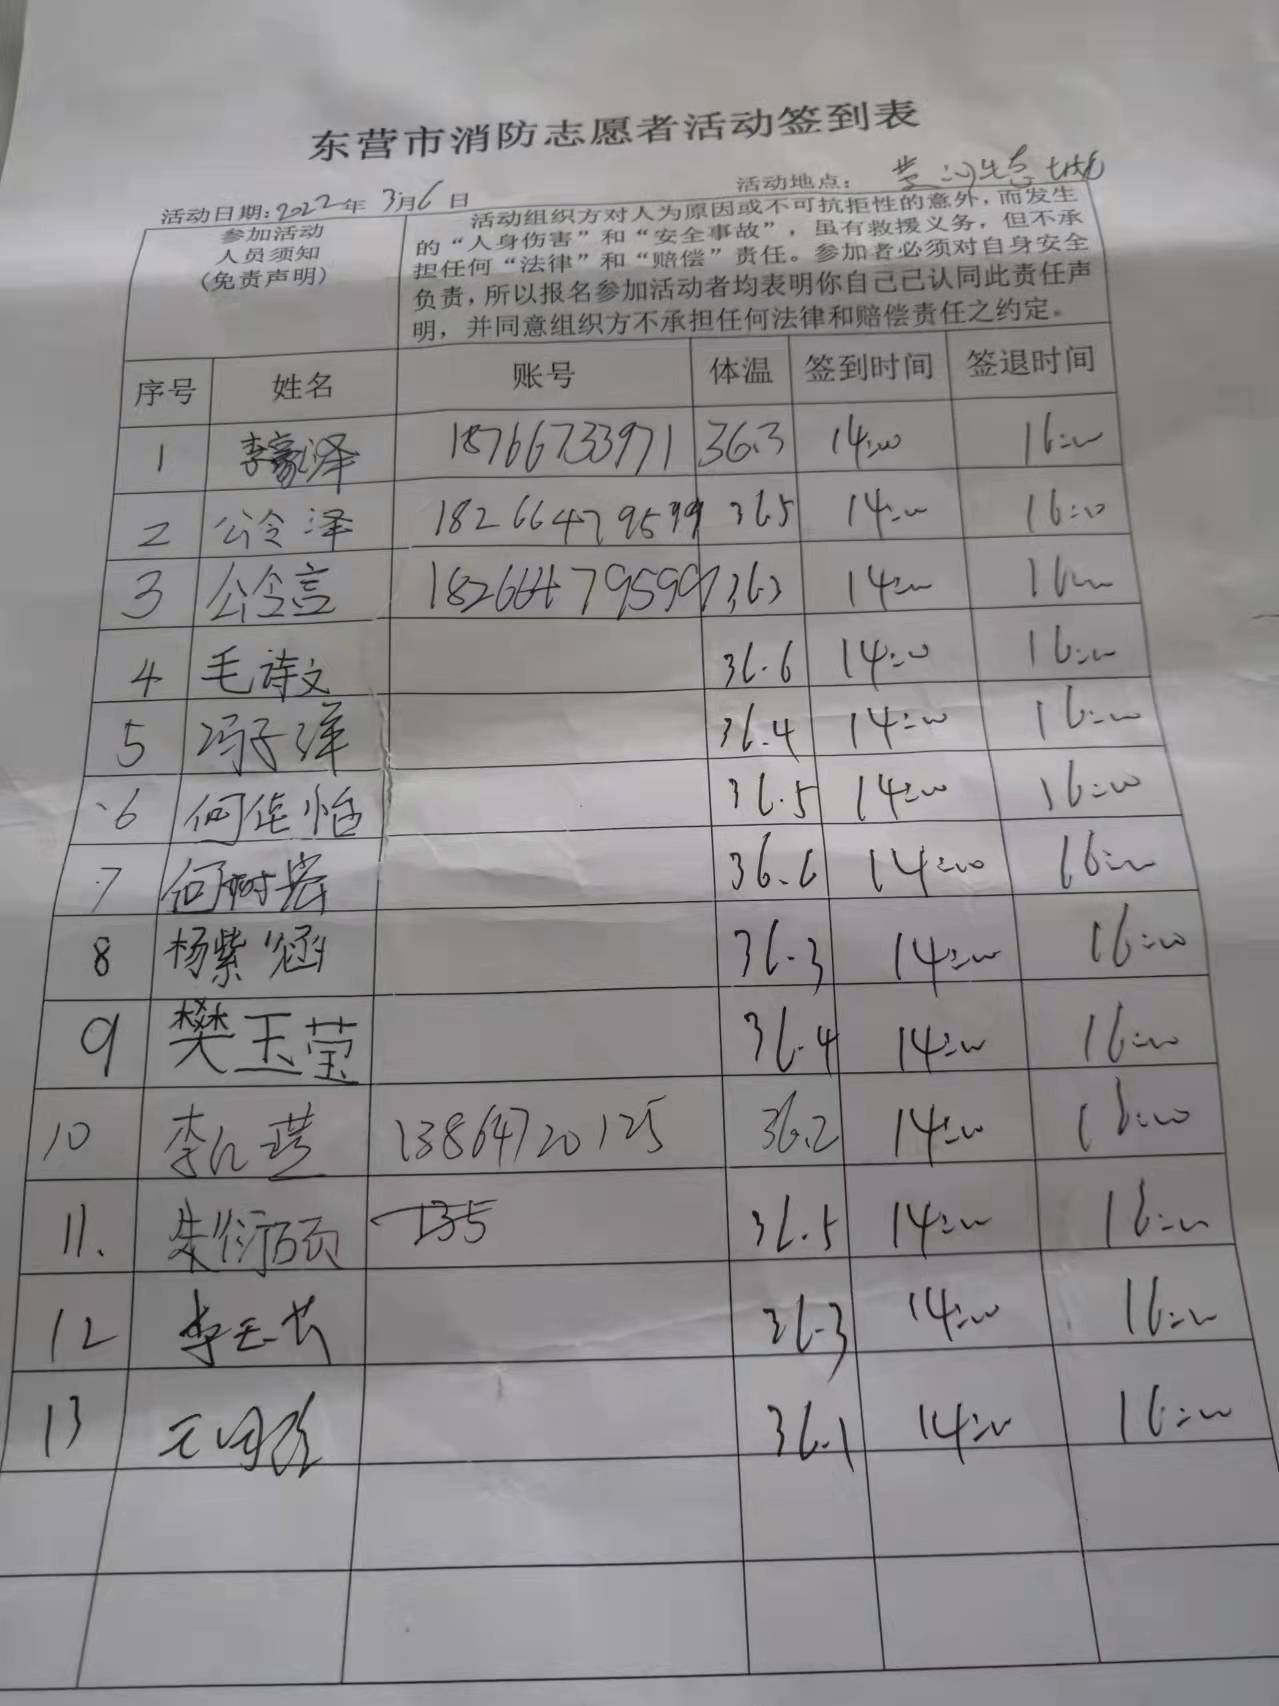 东营市消防志愿者活动签到表
活动日期:2022年 3月6日 活动地点:
参加活动
人员须知
(免责声明)
活动组织方对人为原因或不可抗拒性的意外,而发生
的“人身伤害”和“安全事故”,虽有救援义务,但不承
担任何“法律”和“赔偿”责任。参加者必须对自身安全
负责,所以报名参加活动者均表明你自己己认同此责任声
明,并同意组织方不承担任何法律和赔偿责任之约定。
序号 姓名 账号 体温 签到时间 签退时间
1 李豪泽 18766733971 36.3 14:00 16:00
2 公令泽 18266479599 36.5 14:00 16:00
3 公令言 18266479599 36.3 14:00 16:00
4 毛诗文 36.6 14:00 16:00
5 冯子洋 36.4 14:00 16:00
6 何佳怡 36.5 14:00 16:00
7 何树岩 36.6 14:00 16:00
8 杨紫涵 36.3 14:00 16:00
9 樊玉莹 36.4 14:00 16:00
10 13864720125 36.2 14:00 16:00
11. 朱衍硕 135 36.5 14:00 16:00
12 36.3 14:00 16:00
13 36.1 14:00 16:00